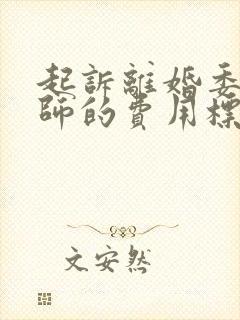 起訴離婚委
師的費用標
文安然